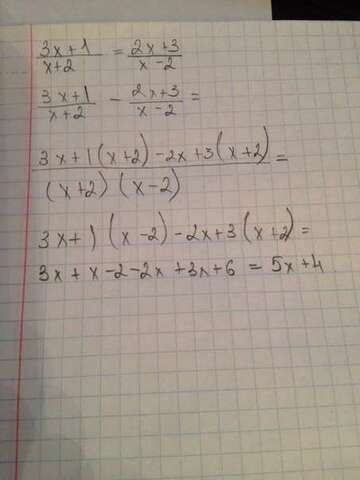 3x+1/x+2 = 2x+3/x-2
3x+1/x+2 - 2x+3/x-2 =
3x+1(x+2)-2x+3(x+2)/(x+2)(x-2) =
3x+1(x-2)-2x+3(x+2)=
3x+x-2-2x+3x+6=5x+4